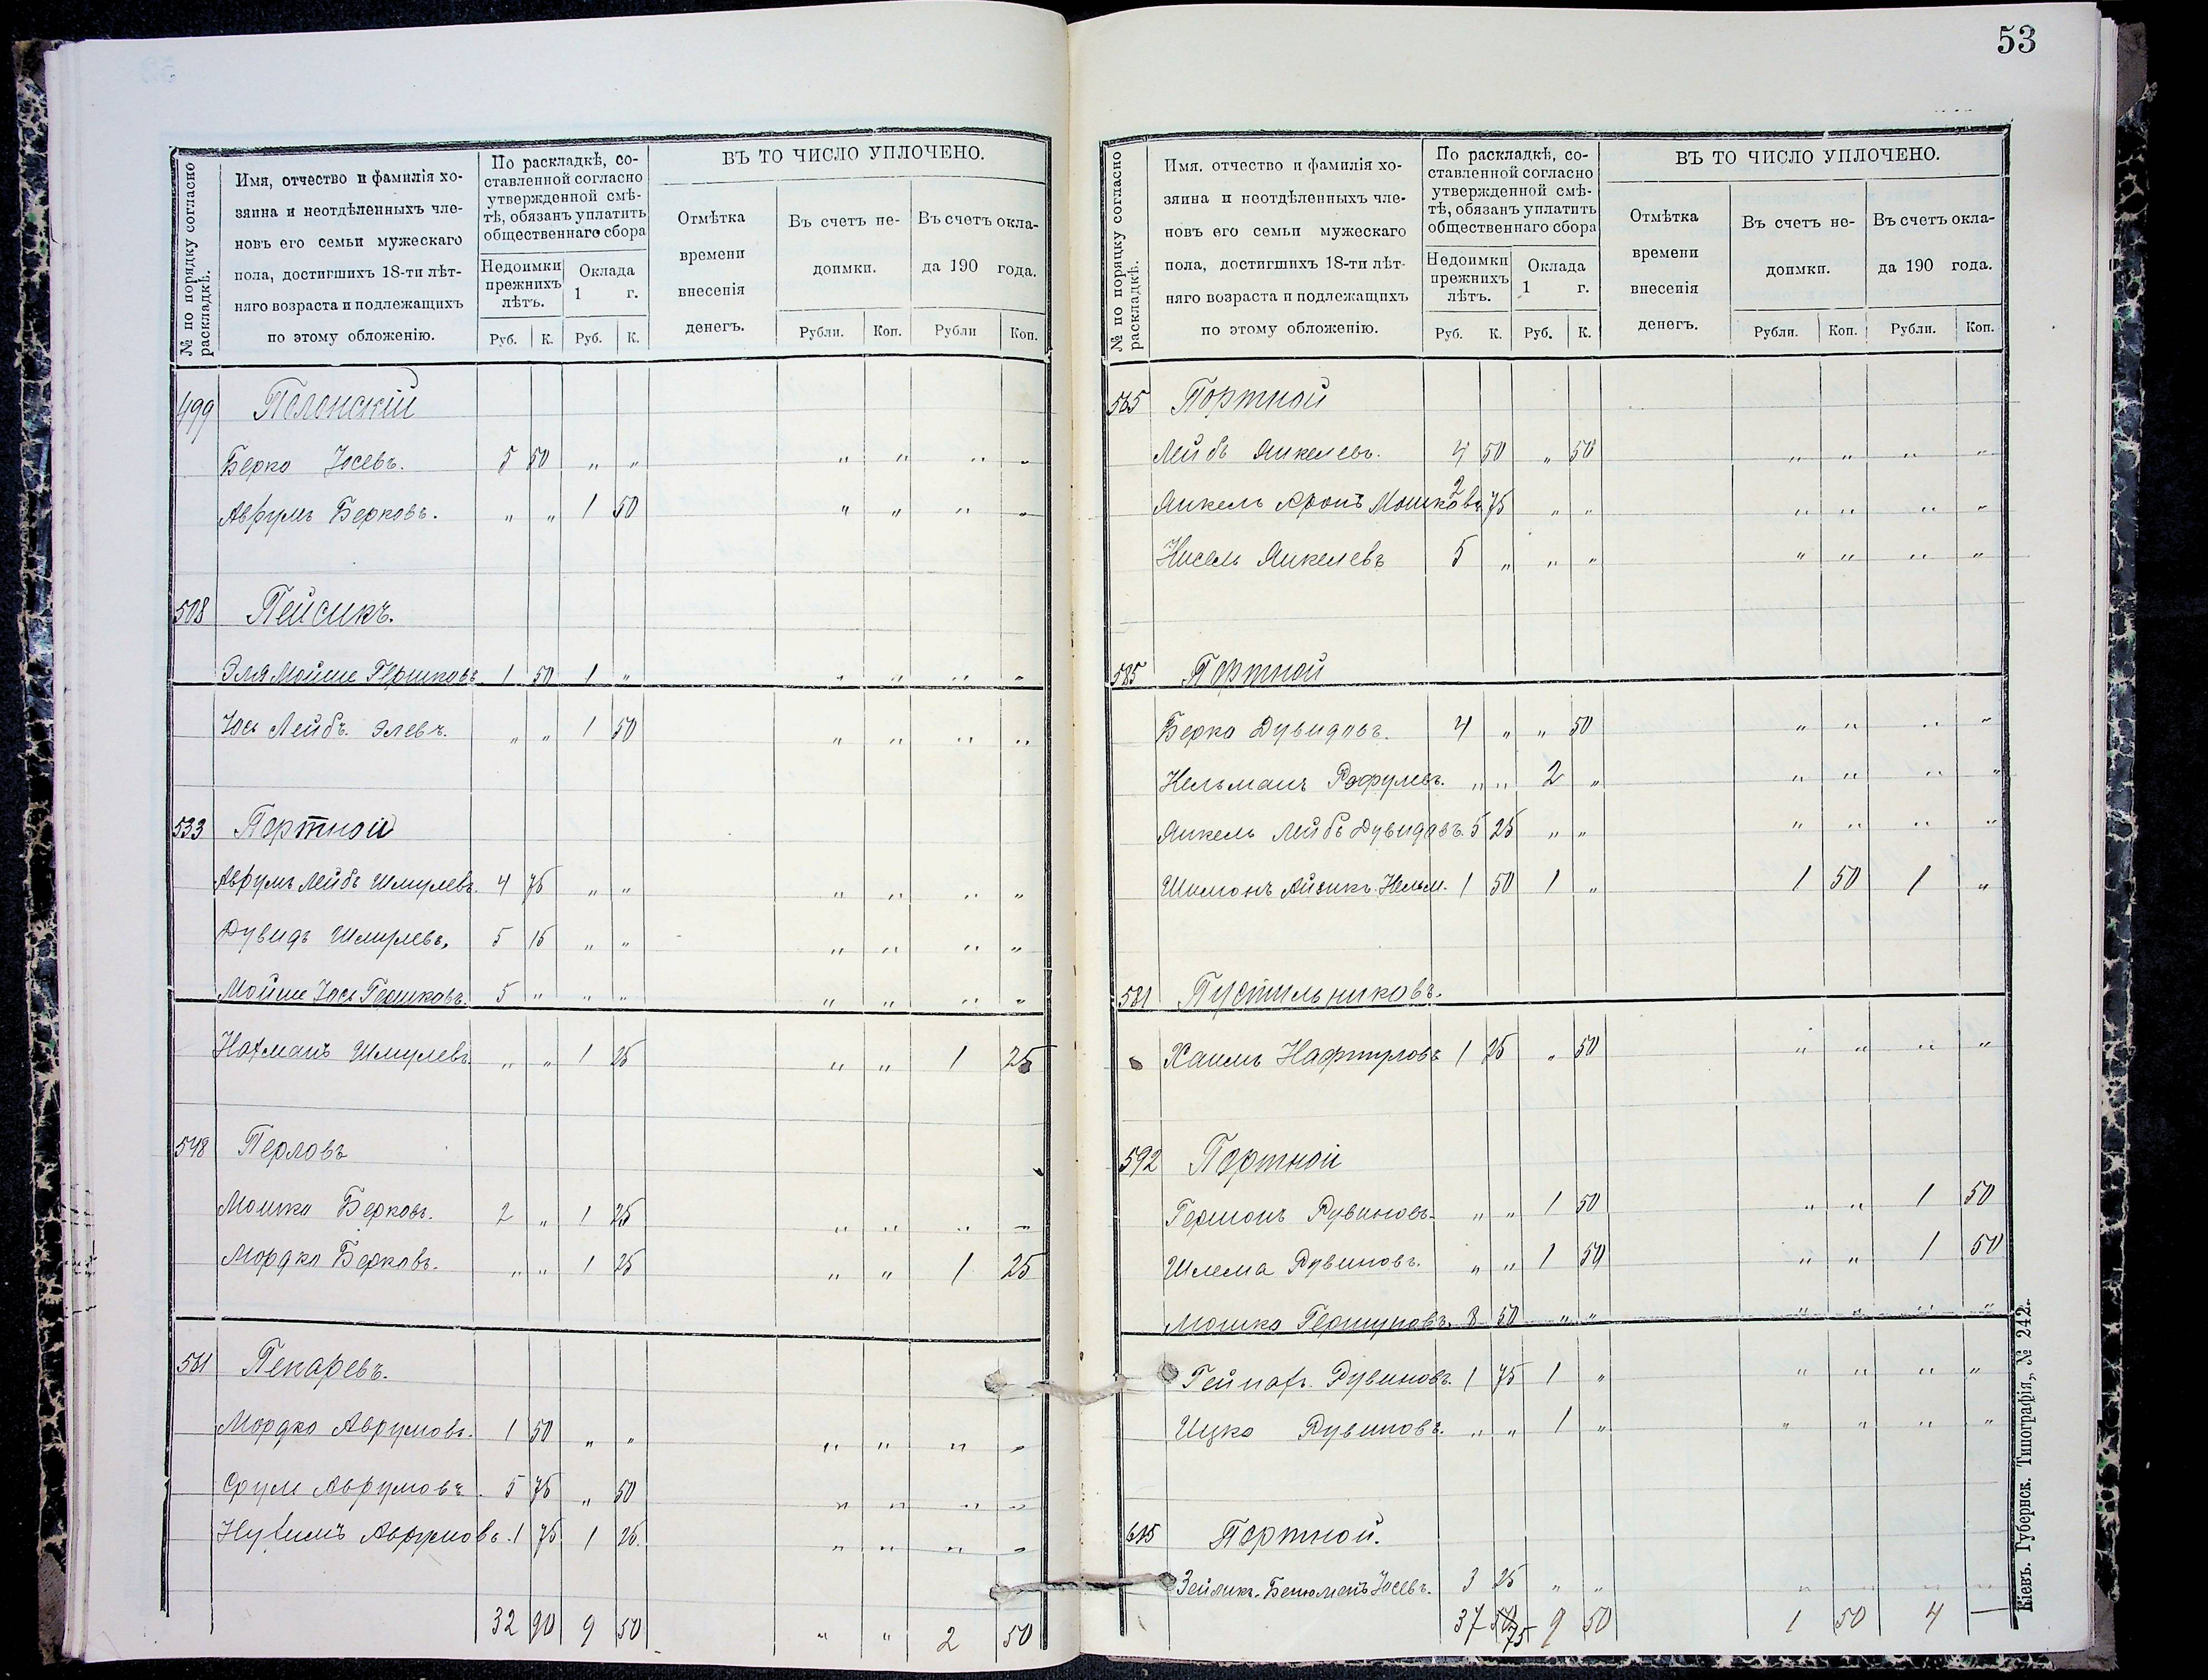 53
№ по порядку согласно раскладкѣ.
Имя, отчество и фамилія хо-
зяина и неотдѣленныхъ чле-
новъ его семьи мужескаго
пола, достигшихъ 18-ти лѣт-
няго возраста и подлежащихъ
по этому обложенію.
По раскладкѣ, со-
ставленной согласно
утвержденной смѣ-
тѣ, обязанъ уплатить
общественнаго сбора
Недоимки
прежнихъ
лѣтъ.
Оклада
1 г.
Руб. К. Руб. К.
ВЪ ТО ЧИСЛО УПЛОЧЕНО.
Отмѣтка
времени
внесенія
денегъ.
Въ счетъ не-
доимки.
Въ счетъ окла-
да 190 года.
Рубли. Коп. Рубли Коп.
499 Полонскій
Берко Іосевъ. 5 50 " " " " " "
Аврумъ Берковъ. " " 1 50 " " " "
508 Пейсикъ.
Эля Мойше Гершковъ 1 50 1 " " " " "
Іось Лейбъ Элевъ. " " 1 50 " " " "
533 Портной
Аврумъ Лейбъ Шмулевъ. 4 75 " " " " " "
Дувидъ Шмулевъ, 5 15 " " " " " "
Мойше Іось Гершковъ. 5 " " " " " " "
Нахманъ Шмулевъ. " " 1 25 " " 1 25
548 Перловъ
Мошко Берковъ. 2 " 1 25 " " " "
Мордко Берковъ. " " 1 25 " " 1 25
561 Пекаревъ.
Мордко Аврумовъ. 1 50 " " " " " "
Сруль Аврумовъ. 5 75 " 50 " " " "
Нухимъ Аврумовъ. 1 75 1 25 " " " "
32 90 9 50 " " 2 50
№ по порядку согласно раскладкѣ.
Имя. отчество и фамилія хо-
зяина и неотдѣленныхъ чле-
новъ его семьи мужескаго
пола, достигшихъ 18-ти лѣт-
няго возраста и подлежащихъ
по этому обложенію.
По раскладкѣ, со-
ставленной согласно
утвержденной смѣ-
тѣ, обязанъ уплатить
общественнаго сбора
Недоимки
прежнихъ
лѣтъ.
Оклада
1 г.
Руб. К. Руб. К.
ВЪ ТО ЧИСЛО УПЛОЧЕНО.
Отмѣтка
времени
внесенія
денегъ.
Въ счетъ не-
доимки.
Въ счетъ окла-
да 190 года.
Рубли. Коп. Рубли. Коп.
565 Портной
Лейбъ Янкелевъ. 4 50 " 50 " " " "
Янкель Аронъ Мошковъ 2 75 " " " " " "
Нисель Янкелевъ 5 " " " " " " "
Портной
Берко Дувидовъ. 4 " " 50 " " " "
Кельманъ " " 2 " " " " "
Янкель Лейбъ Дувидовъ. 5 25 " " " " " "
Шимонъ Айзикъ Кельм. 1 50 1 " 1 50 1 "
581 Пустильниковъ.
Хаимъ Нафтуловъ 1 25 " 50 " " " "
592 Портной
Гершонъ Рувиновъ. " " 1 50 " " 1 50
Шлема Рувиновъ. " " 1 50 " " 1 50
Мошко Гершуновъ. 8 50 " " " " " "
Рувиновъ. 1 75 1 " " " " "
Ицко Рувиновъ. " " 1 " " " " "
Портной.
Зейликъ Іосевъ. 3 25 " " " " " "
37 50 75 9 50 1 50 4 —
Кіевъ. Губернск. Типографія,, № 242.